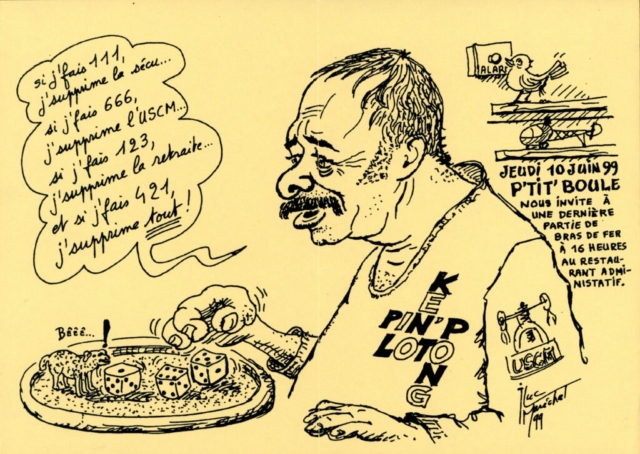 si j'fais 111,
j'supprime la sécu...
si j'fais 666,
j'supprime l'USCM...
si j'fais 123,
j'supprime la retraite...
et si j'fais 421,
j'supprime tout !
JEUDI 10 JUIN 99
P'TIT' BOULE
NOUS INVITE À
UNE DERNIÈRE
PARTIE DE
BRAS DE FER
À 16 HEURES
AU RESTAU-
RANT ADMI-
NISTATIF.
BÊÊÊ...
!
PIN'P
LOTO
USCM
Luc
99